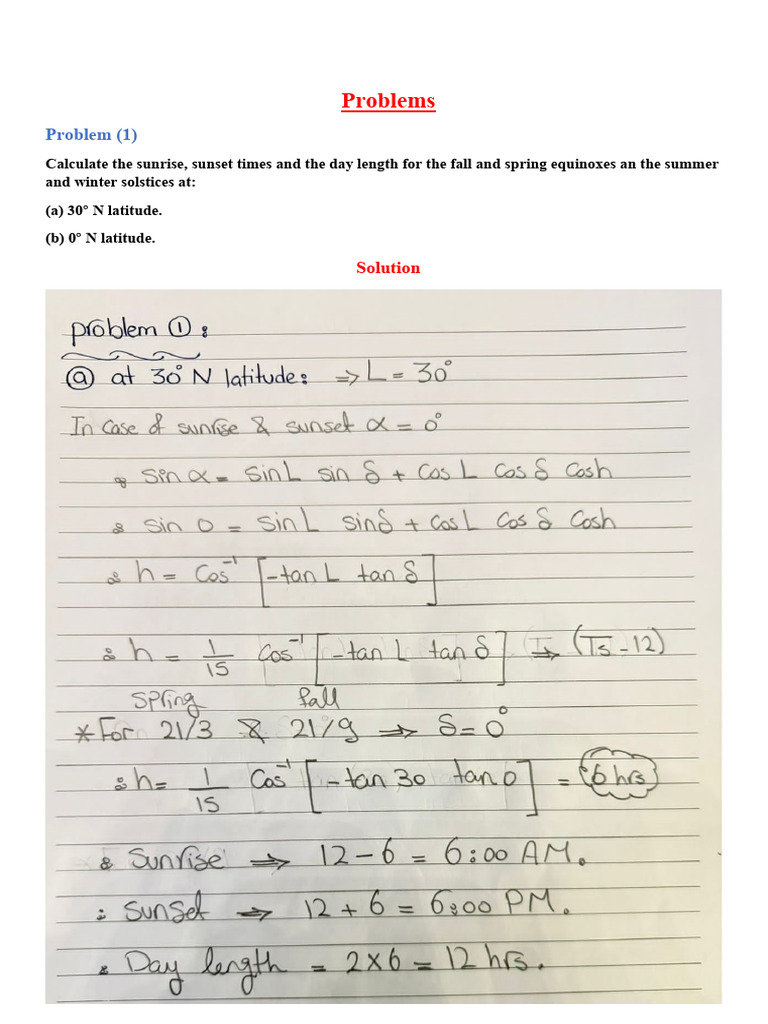 Problems
Problem (1)
Calculate the sunrise, sunset times and the day length for the fall and spring equinoxes an the summer
and winter solstices at:
(a) 30° N latitude.
(b) 0° N latitude.
Solution
problem ① :
ⓐ at 30° N latitude: ⇒ L = 30°
In case of sunrise & sunset α = 0°
∴ sin α = sin L sin δ + cos L cos δ cosh
∴ sin 0 = sin L sin δ + cos L cos δ cosh
∴ h = cos⁻¹ [-tan L tan δ]
∴ h = 1/15 cos⁻¹ [-tan L tan δ] → (Ts - 12)
spring fall
* For 21/3 & 21/9 ⇒ δ = 0°
∴ h = 1/15 cos⁻¹ [-tan 30 tan 0] = 6 hrs
∴ Sunrise ⇒ 12 - 6 = 6:00 AM.
∴ Sunset ⇒ 12 + 6 = 6:00 PM.
∴ Day length = 2×6 = 12 hrs.